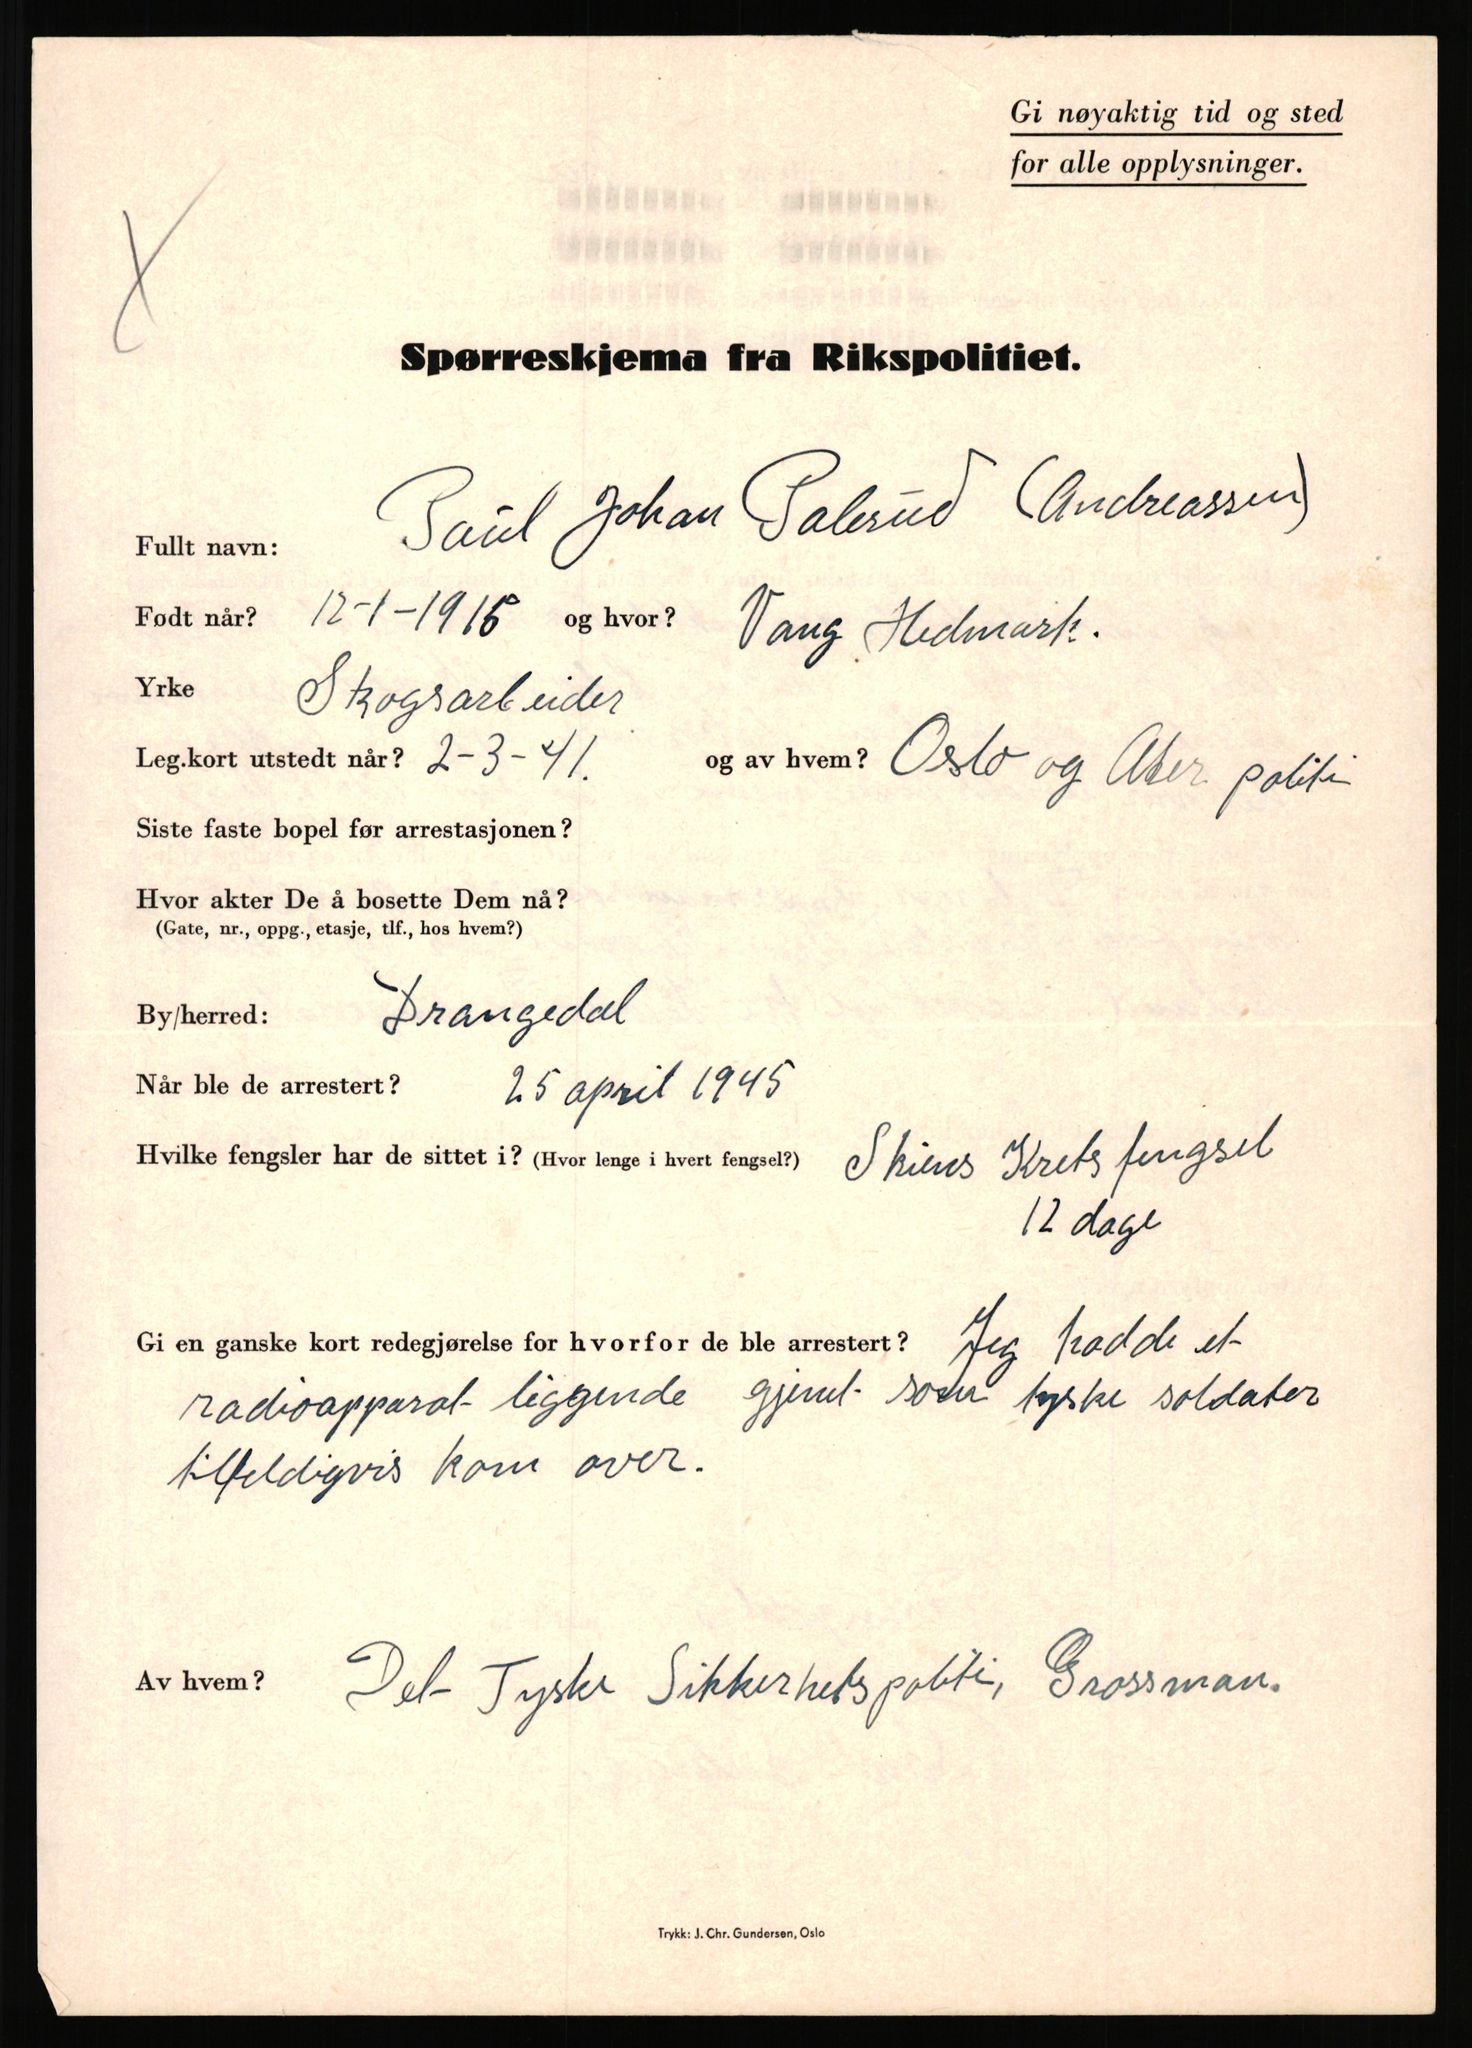 Gi nøyaktig tid og sted
for alle opplysninger.
Spørreskjema fra Rikspolitiet.
Fullt navn: Paul Johan Palerud (Andreassen)
Født når? 12-1-1915 og hvor? Vang Hedmark.
Yrke Skogsarbeider
Leg.kort utstedt når? 2-3-41. og av hvem? Oslo og Aker politi
Siste faste bopel før arrestasjonen?
Hvor akter De å bosette Dem nå?
(Gate, nr., oppg., etasje, tlf., hos hvem?)
By/herred: Drangedal
Når ble de arrestert? 25 april 1945
Hvilke fengsler har de sittet i? (Hvor lenge i hvert fengsel?) Skiens Kretsfengsel
12 dage
Gi en ganske kort redegjørelse for hvorfor de ble arrestert? Jeg hadde et
radioapparat liggende gjemt som tyske soldater
tilfeldigvis kom over.
Av hvem? Det Tyske Sikkerhetspoliti, Grossman.
Trykk: J. Chr. Gundersen, Oslo